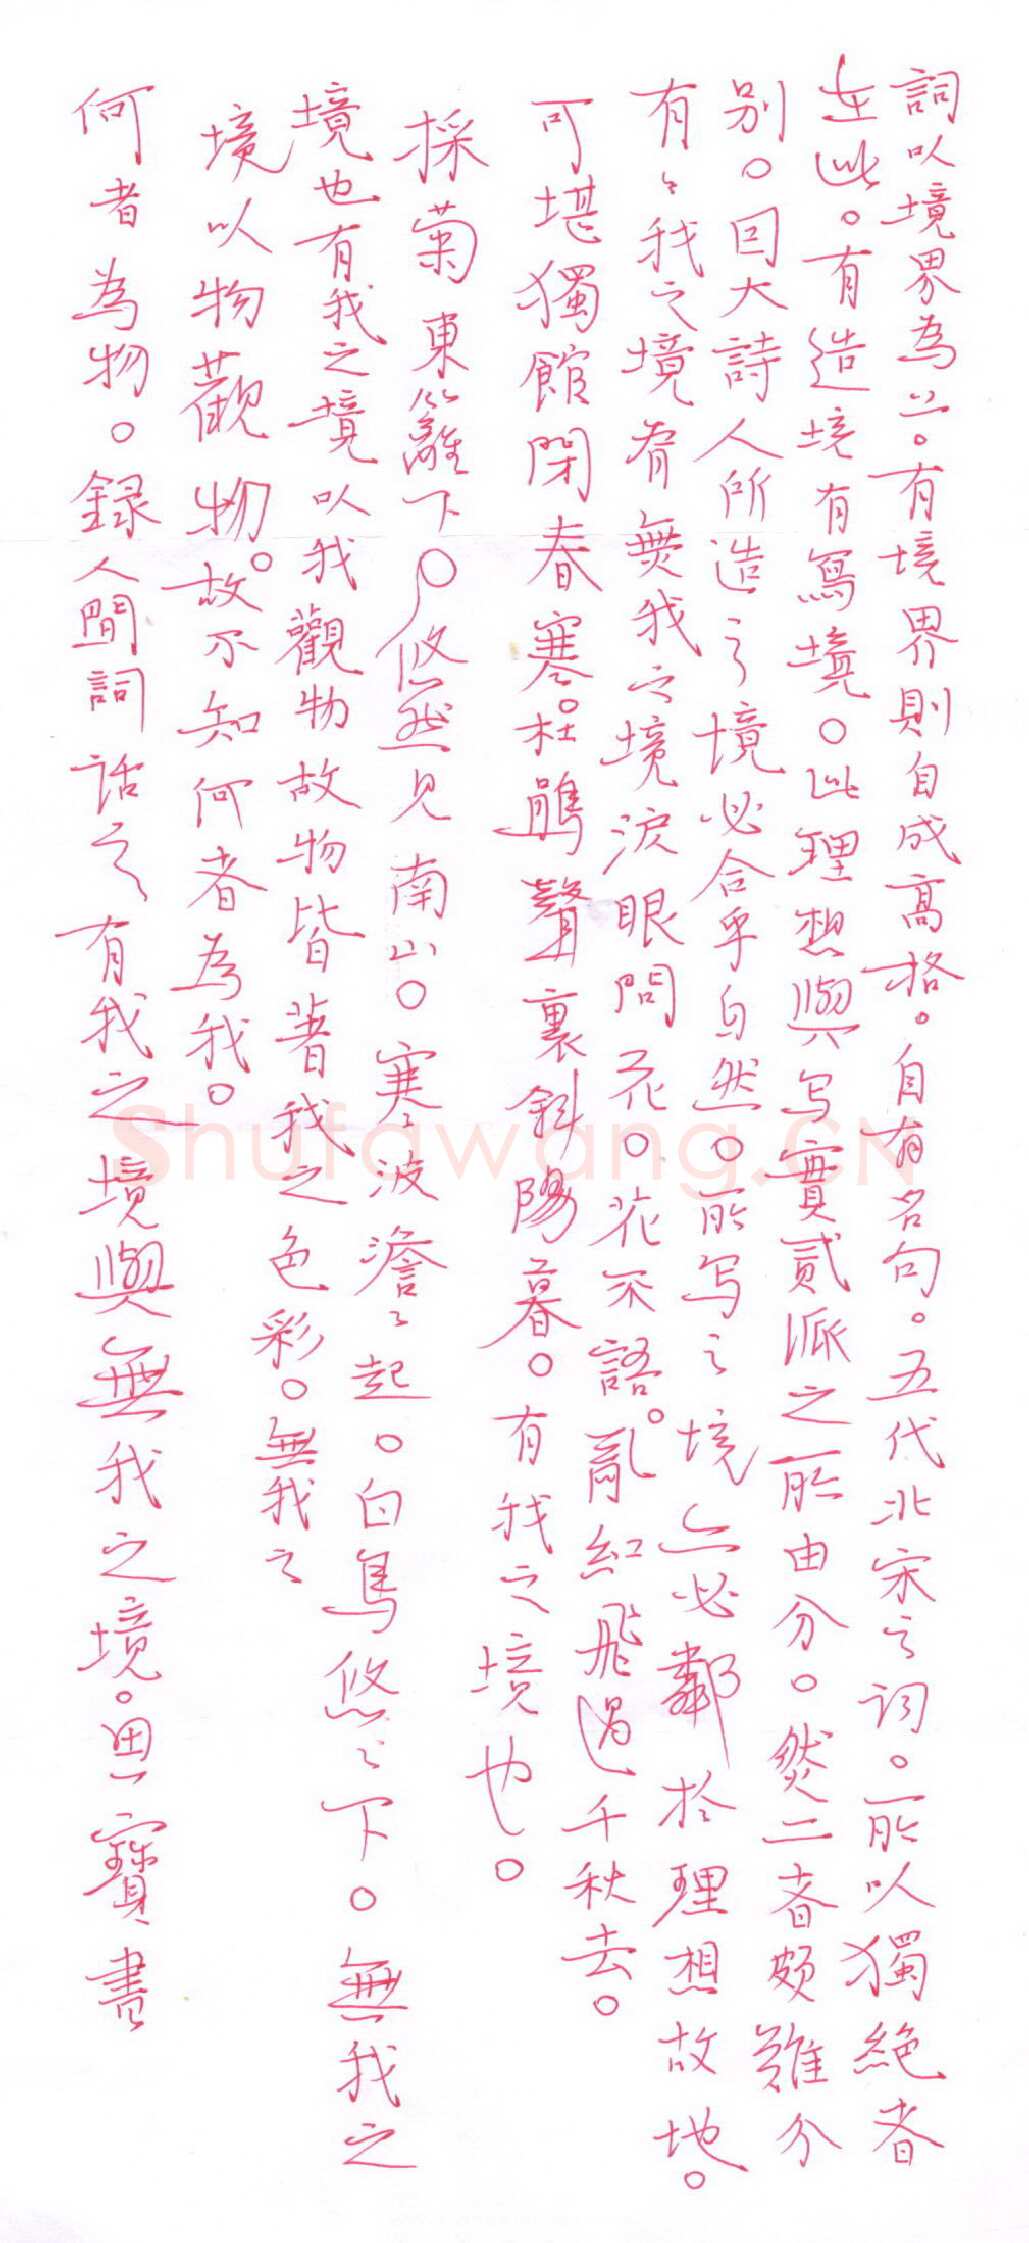 詞以境界為上。有境界則自成高格。自有名句。五代北宋之詞。所以獨絕者
在此。有造境有寫境。此理想與写實貳派之所由分。然二者頗難分
別。因大詩人所造之境必合乎自然。所写之境亦必鄰於理想故地。
有々我之境有無我之境淚眼問花。花不語。亂紅飛過千秋去。
可堪獨館閉春寒。杜鵑聲裏斜陽暮。有我之境也。
採菊東籬下。悠然見南山。寒波澹々起。白鳥悠々下。無我之
境也有我之境以我觀物故物皆著我之色彩。無我之
境以物觀物。故不知何者為我。
何者為物。録人間詞話之有我之境與無我之境。思寶書
Shufawang.CN